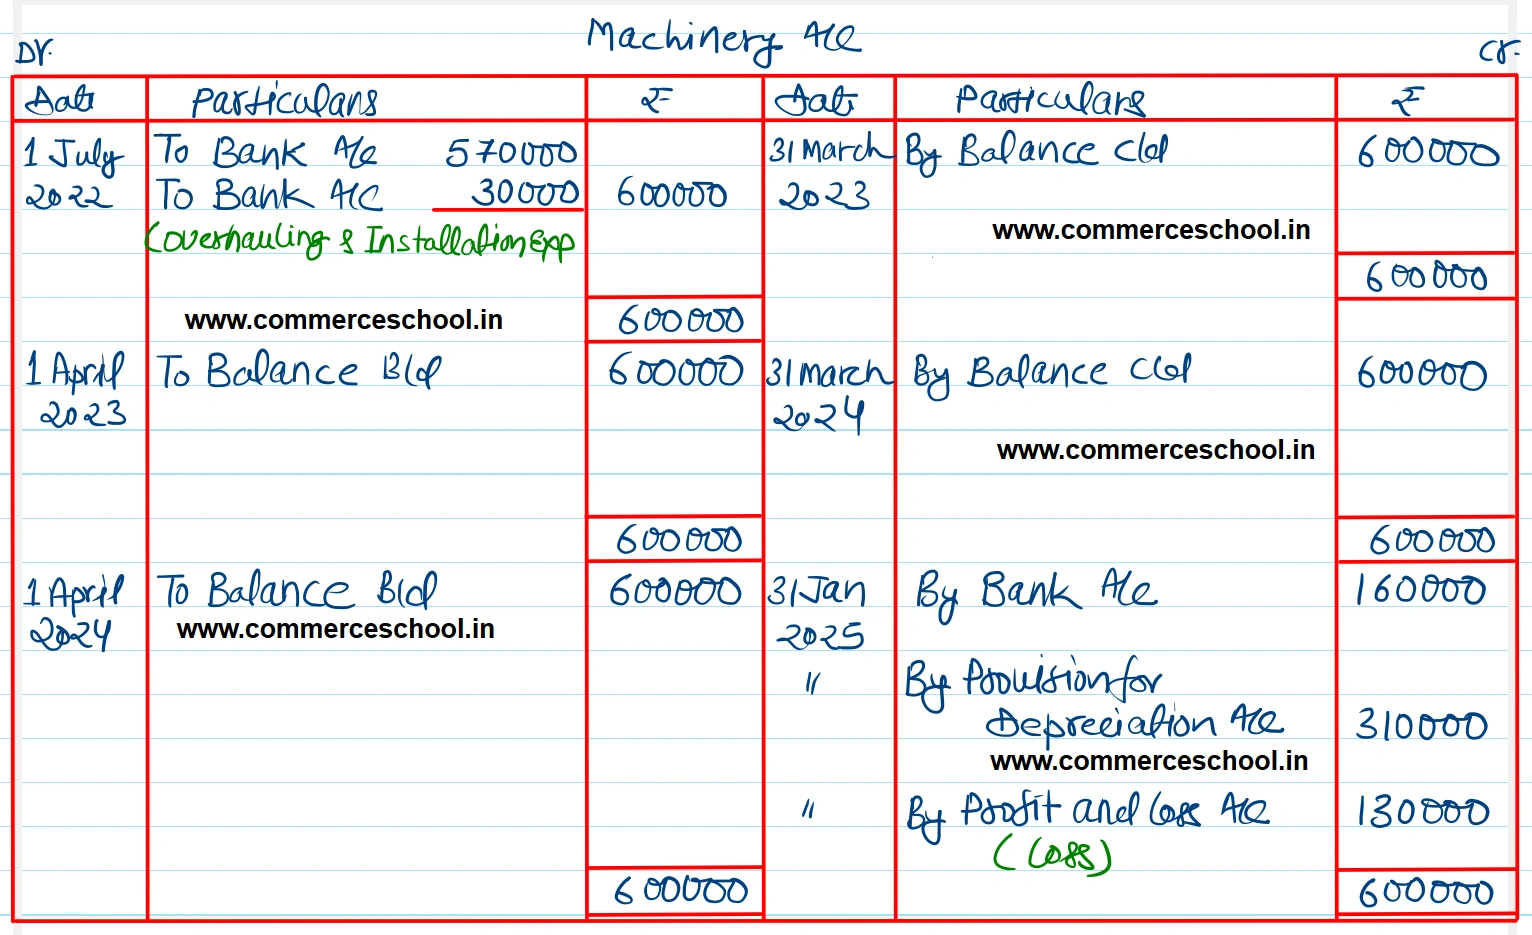 Machinery A/c
Dr. Cr.
Date Particulars ₹ Date Particulars ₹
1 July To Bank A/c 570000 31 March By Balance c/d 600000
2022 To Bank A/c 30000 600000 2023
(Overhauling & Installation Exp www.commerceschool.in
600000
www.commerceschool.in 600000
1 April To Balance B/d 600000 31 March By Balance c/d 600000
2023 2024
www.commerceschool.in
600000 600000
1 April To Balance B/d 600000 31 Jan By Bank A/c 160000
2024 www.commerceschool.in 2025
" By Provision for
Depreciation A/c 310000
www.commerceschool.in
" By Profit and Loss A/c 130000
(Loss)
600000 600000